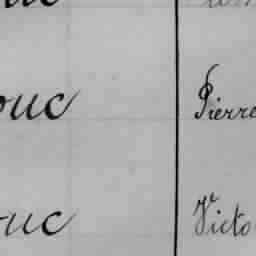 ouc Pierre
ouc Victo